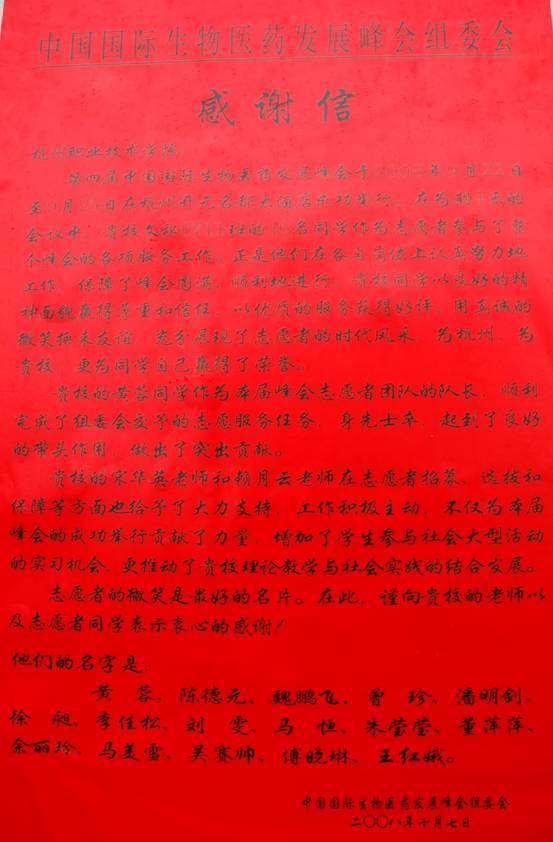 中国国际生物医药发展峰会组委会
感谢信
杭州职业技术学院:
第四届中国国际生物医药发展峰会于2008年9月22日
至9月25日在杭州开元名都大酒店成功举行。在为期4天的
会议中,贵校文秘班的名同学作为志愿者参与了整
个峰会的各项服务工作。正是他们在各自岗位上认真努力地
工作,保障了峰会圆满、顺利地进行。贵校同学以良好的精
神面貌赢得尊重和信任,以优质的服务获得好评,用真诚的
微笑换来友谊,充分展现了志愿者的时代风采,为杭州、为
贵校,更为同学自己赢得了荣誉。
贵校的黄蓉同学作为本届峰会志愿者团队的队长,顺利
完成了组委会交予的志愿服务任务,身先士卒,起到了良好
的带头作用,做出了突出贡献。
贵校的宋华英老师和赖月云老师在志愿者招募、选拔和
保障等方面也给予了大力支持,工作积极主动,不仅为本届
峰会的成功举行贡献了力量,增加了学生参与社会大型活动
的实习机会,更推动了贵校理论教学与社会实践的结合发展。
志愿者的微笑是最好的名片。在此,谨向贵校的老师以
及志愿者同学表示衷心的感谢!
他们的名字是:
黄 蓉、陈德元、魏鹏飞、曾 珍、潘明剑、
徐 昶、李佳松、刘 雯、马 恒、朱莹莹、董萍萍、
余丽玲、马美雪、吴赛帅、傅晓琳、王红娥。
中国国际生物医药发展峰会组委会
二〇〇八年十月七日